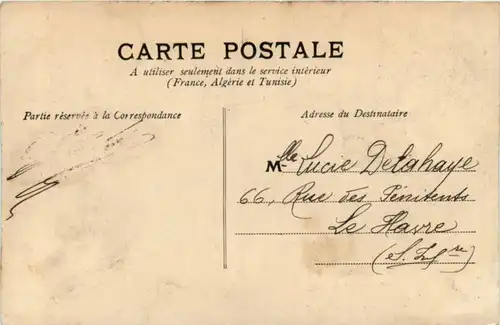 CARTE POSTALE
A utiliser seulement dans le service intérieur
(France, Algérie et Tunisie)
Partie réservée à la Correspondance
Adresse du Destinataire
Mlle Lucie Delahaye
66, Rue des Pénitents
Le Havre
(S. Infre)